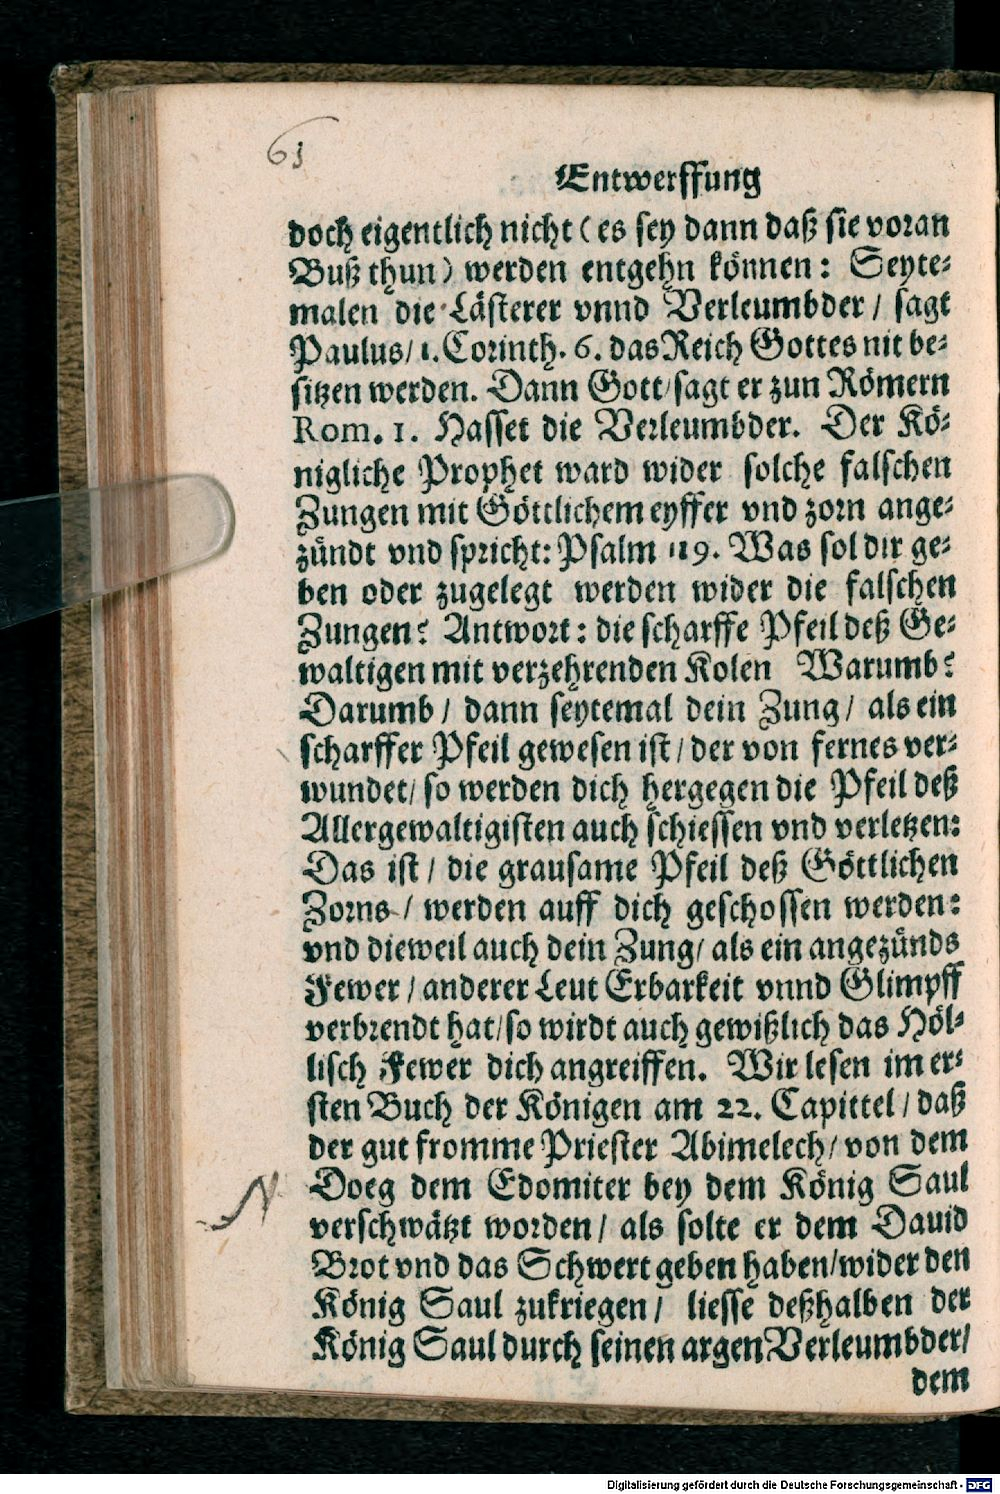 61
Entwerffung
doch eigentlich nicht (es sey dann daß sie voran
Buß thun) werden entgehn können: Seyte-
malen die Lästerer vnnd Verleumbder / sagt
Paulus / 1. Corinth. 6. das Reich Gottes nit be-
sitzen werden. Dann Gott / sagt er zun Römern
Rom. 1. Hasset die Verleumbder. Der Kö-
nigliche Prophet ward wider solche falschen
Zungen mit Göttlichem eyffer vnd zorn ange-
zündt vnd spricht: Psalm 119. Was sol dir ge-
ben oder zugelegt werden wider die falschen
Zungen? Antwort: die scharffe Pfeil deß Ge-
waltigen mit verzehrenden Kolen Warumb?
Darumb / dann seytemal dein Zung / als ein
scharffer Pfeil gewesen ist / der von fernes ver-
wundet / so werden dich hergegen die Pfeil deß
Allergewaltigisten auch schiessen vnd verletzen:
Das ist / die grausame Pfeil deß Göttlichen
Zorns / werden auff dich geschossen werden:
vnd dieweil auch dein Zung / als ein angezünds
Fewer / anderer Leut Erbarkeit vnnd Glimpff
verbrendt hat / so wirdt auch gewißlich das Höl-
lisch Fewer dich angreiffen. Wir lesen im er-
sten Buch der Königen am 22. Capittel / daß
der gut fromme Priester Abimelech / von dem
Doeg dem Edomiter bey dem König Saul
verschwätzt worden / als solte er dem Dauid
Brot vnd das Schwert geben haben / wider den
König Saul zukriegen / liesse deßhalben der
König Saul durch seinen argen Verleumbder /
dem
Digitalisierung gefördert durch die Deutsche Forschungsgemeinschaft - DFG